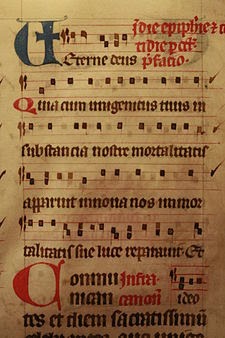 In die epiphīe & cō
tidie p oct̄
Eterne deus p̄facio.
Quia cum unigenitus tuus in
substancia nostre mortalitatis
apparuit in nova nos immor
talitatis sue luce reparauit Et
Commu infra
nican canonē ideo
tes et diem sacratissimū